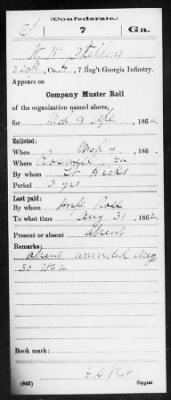 (Confederate.)
7 Ga.
Co. H, 7 Reg't Georgia Infantry.
Appears on
Company Muster Roll
of the organization named above,
for Mch & Apl, 186
Enlisted:
When May, 186
Where Ga
By whom
Period 3 yrs
Last paid:
By whom
To what time Aug 31, 1862.
Present or absent absent
Remarks:
absent wounded Aug
30 1862
Book mark:
(642) Copyist.